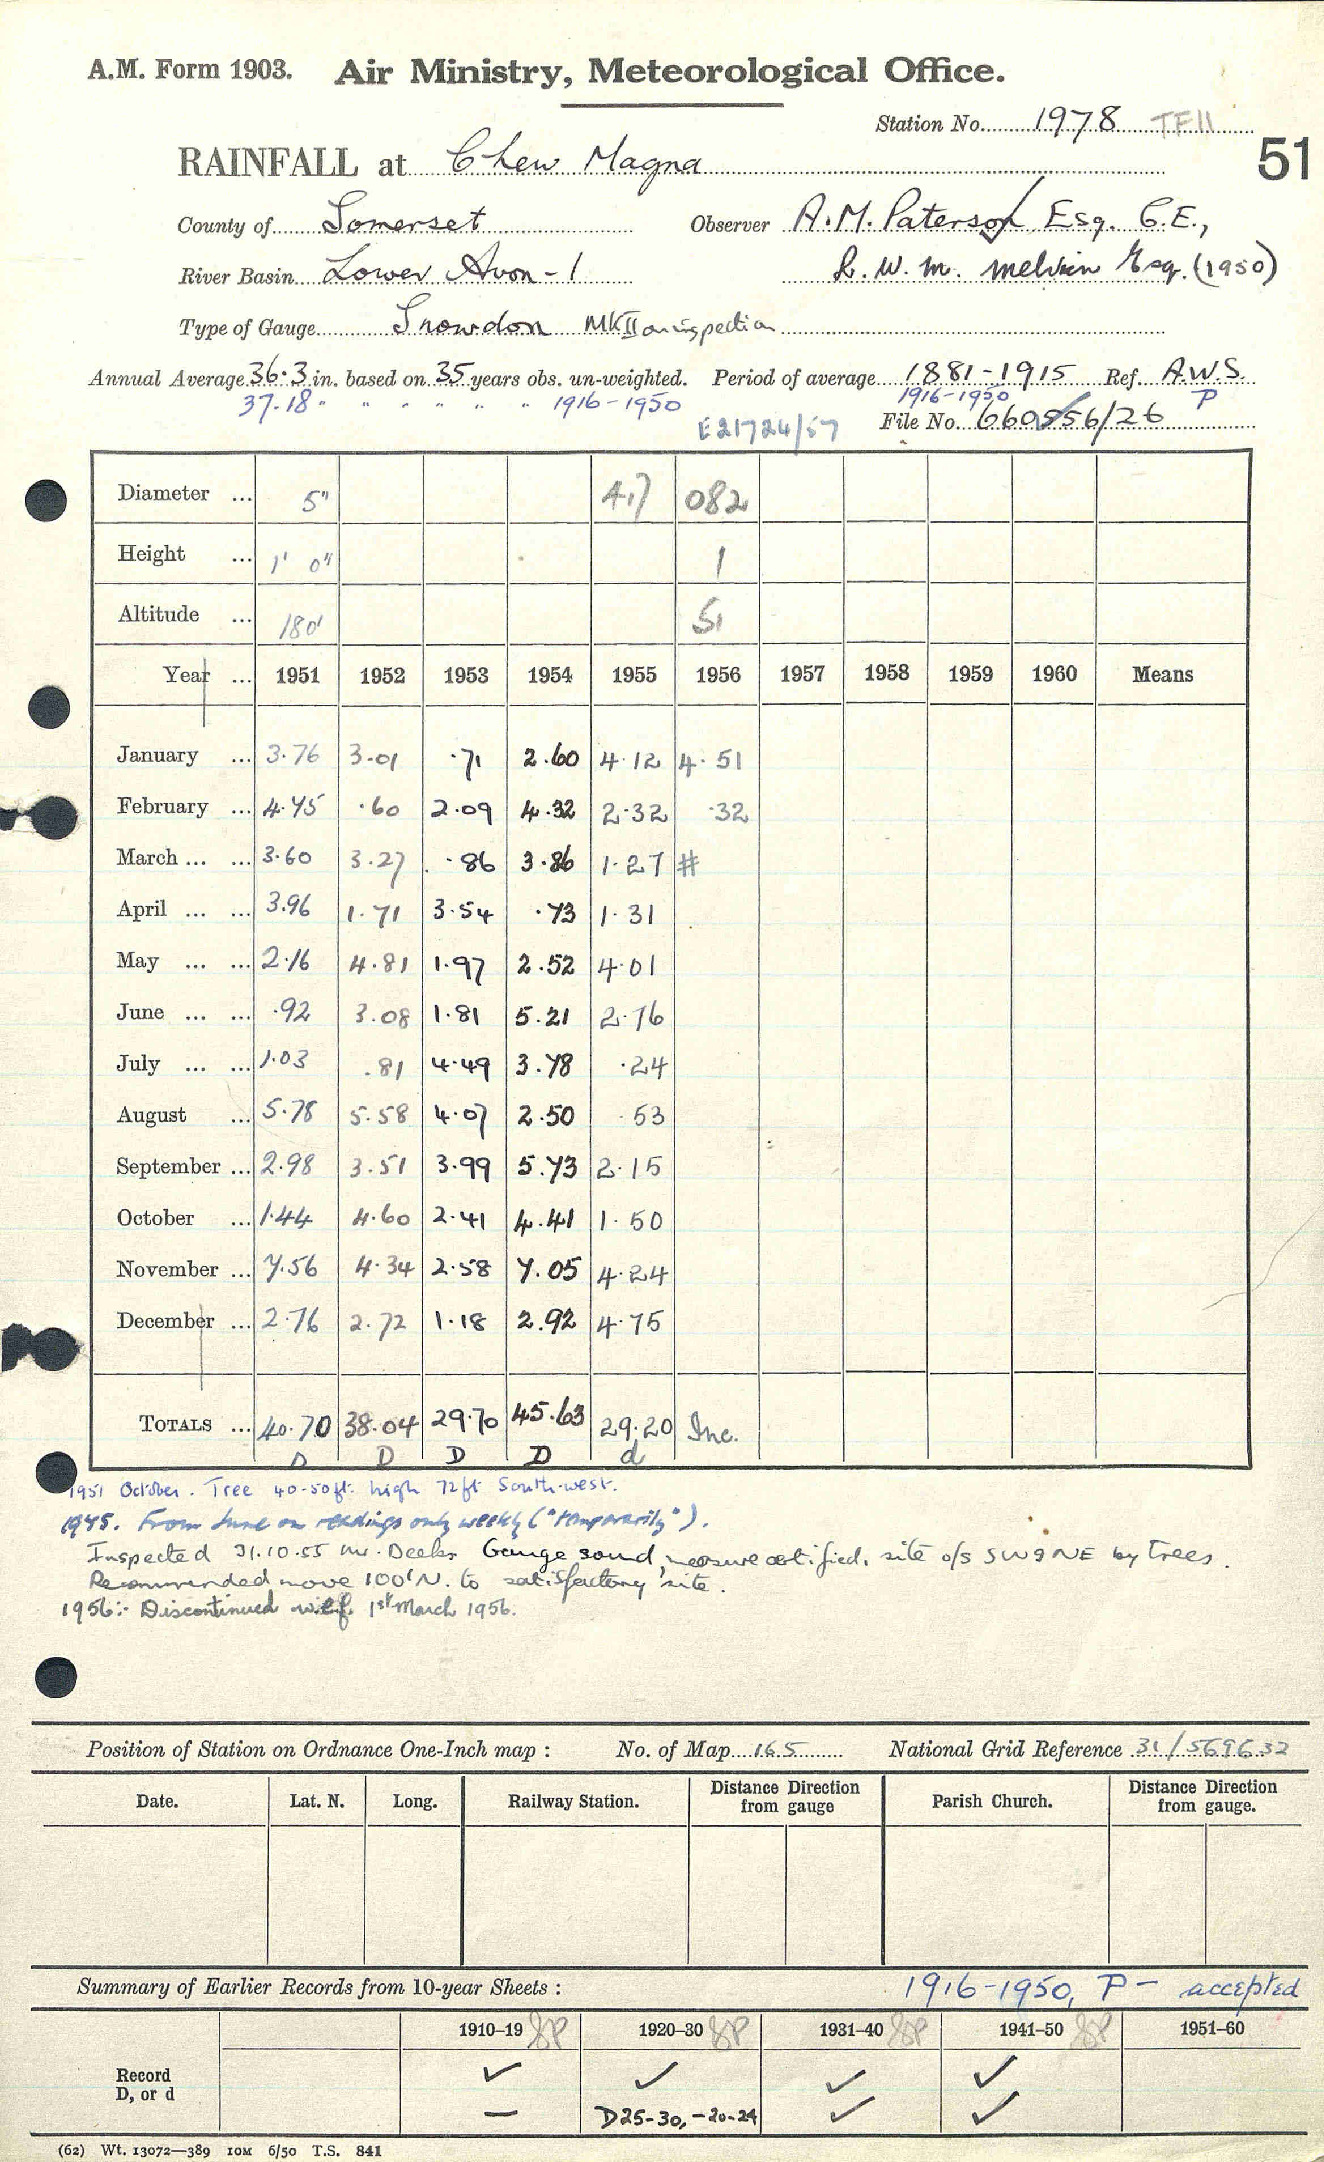 A.M. Form 1903. Air Ministry, Meteorological Office.
Station No. 1978 TF11
51
RAINFALL at Chew Magna
County of Somerset Observer A.M. Paterson Esq. C.E.,
River Basin Lower Avon - 1 L. W. M. Melvin Esq. (1950)
Type of Gauge Snowdon MkII on inspection
Annual Average 36.3 in. based on 35 years obs. un-weighted. Period of average 1881-1915 Ref. A.W.S.
37.18 " " " " " " 1916-1950 1916-1950 P
E21724/57 File No. 660556/26
Diameter ... 5" 4.7 082
Height ... 1' 0" 1
Altitude ... 180' 51
Year ... 1951 1952 1953 1954 1955 1956 1957 1958 1959 1960 Means
January ... 3.76 3.01 .71 2.60 4.12 4.51
February ... 4.75 .60 2.09 4.32 2.32 .32
March ... ... 3.60 3.27 .86 3.86 1.27 #
April ... ... 3.96 1.71 3.54 .73 1.31
May ... ... 2.16 4.81 1.97 2.52 4.01
June ... ... .92 3.08 1.81 5.21 2.76
July ... ... 1.03 .81 4.49 3.78 .24
August ... 5.78 5.58 4.07 2.50 .53
September ... 2.98 3.51 3.99 5.73 2.15
October ... 1.44 4.60 2.41 4.41 1.50
November ... 7.56 4.34 2.58 7.05 4.24
December ... 2.76 2.72 1.18 2.92 4.75
TOTALS ... 40.70 38.04 29.70 45.63 29.20 Inc.
D D D D d
1951 October. Tree 40-50ft. high 72ft South-west.
1945. From June on readings only weekly ("temporarily").
Inspected 31.10.55 Mr. Deeks. Gauge sound, measure certified, site o/s SW & NE by trees.
Recommended move 100' N. to satisfactory site.
1956:- Discontinued w.e.f. 1st March 1956.
Position of Station on Ordnance One-Inch map : No. of Map 165 National Grid Reference 31/569632
Date. Lat. N. Long. Railway Station. Distance Direction from gauge Parish Church. Distance Direction from gauge.
Summary of Earlier Records from 10-year Sheets : 1916-1950, P - accepted
1910-19 1920-30 1931-40 1941-50 1951-60
Record ✓ ✓ ✓ ✓
D, or d — D25-30, -20-24 ✓ ✓
(62) Wt. 13072—389 10M 6/50 T.S. 841